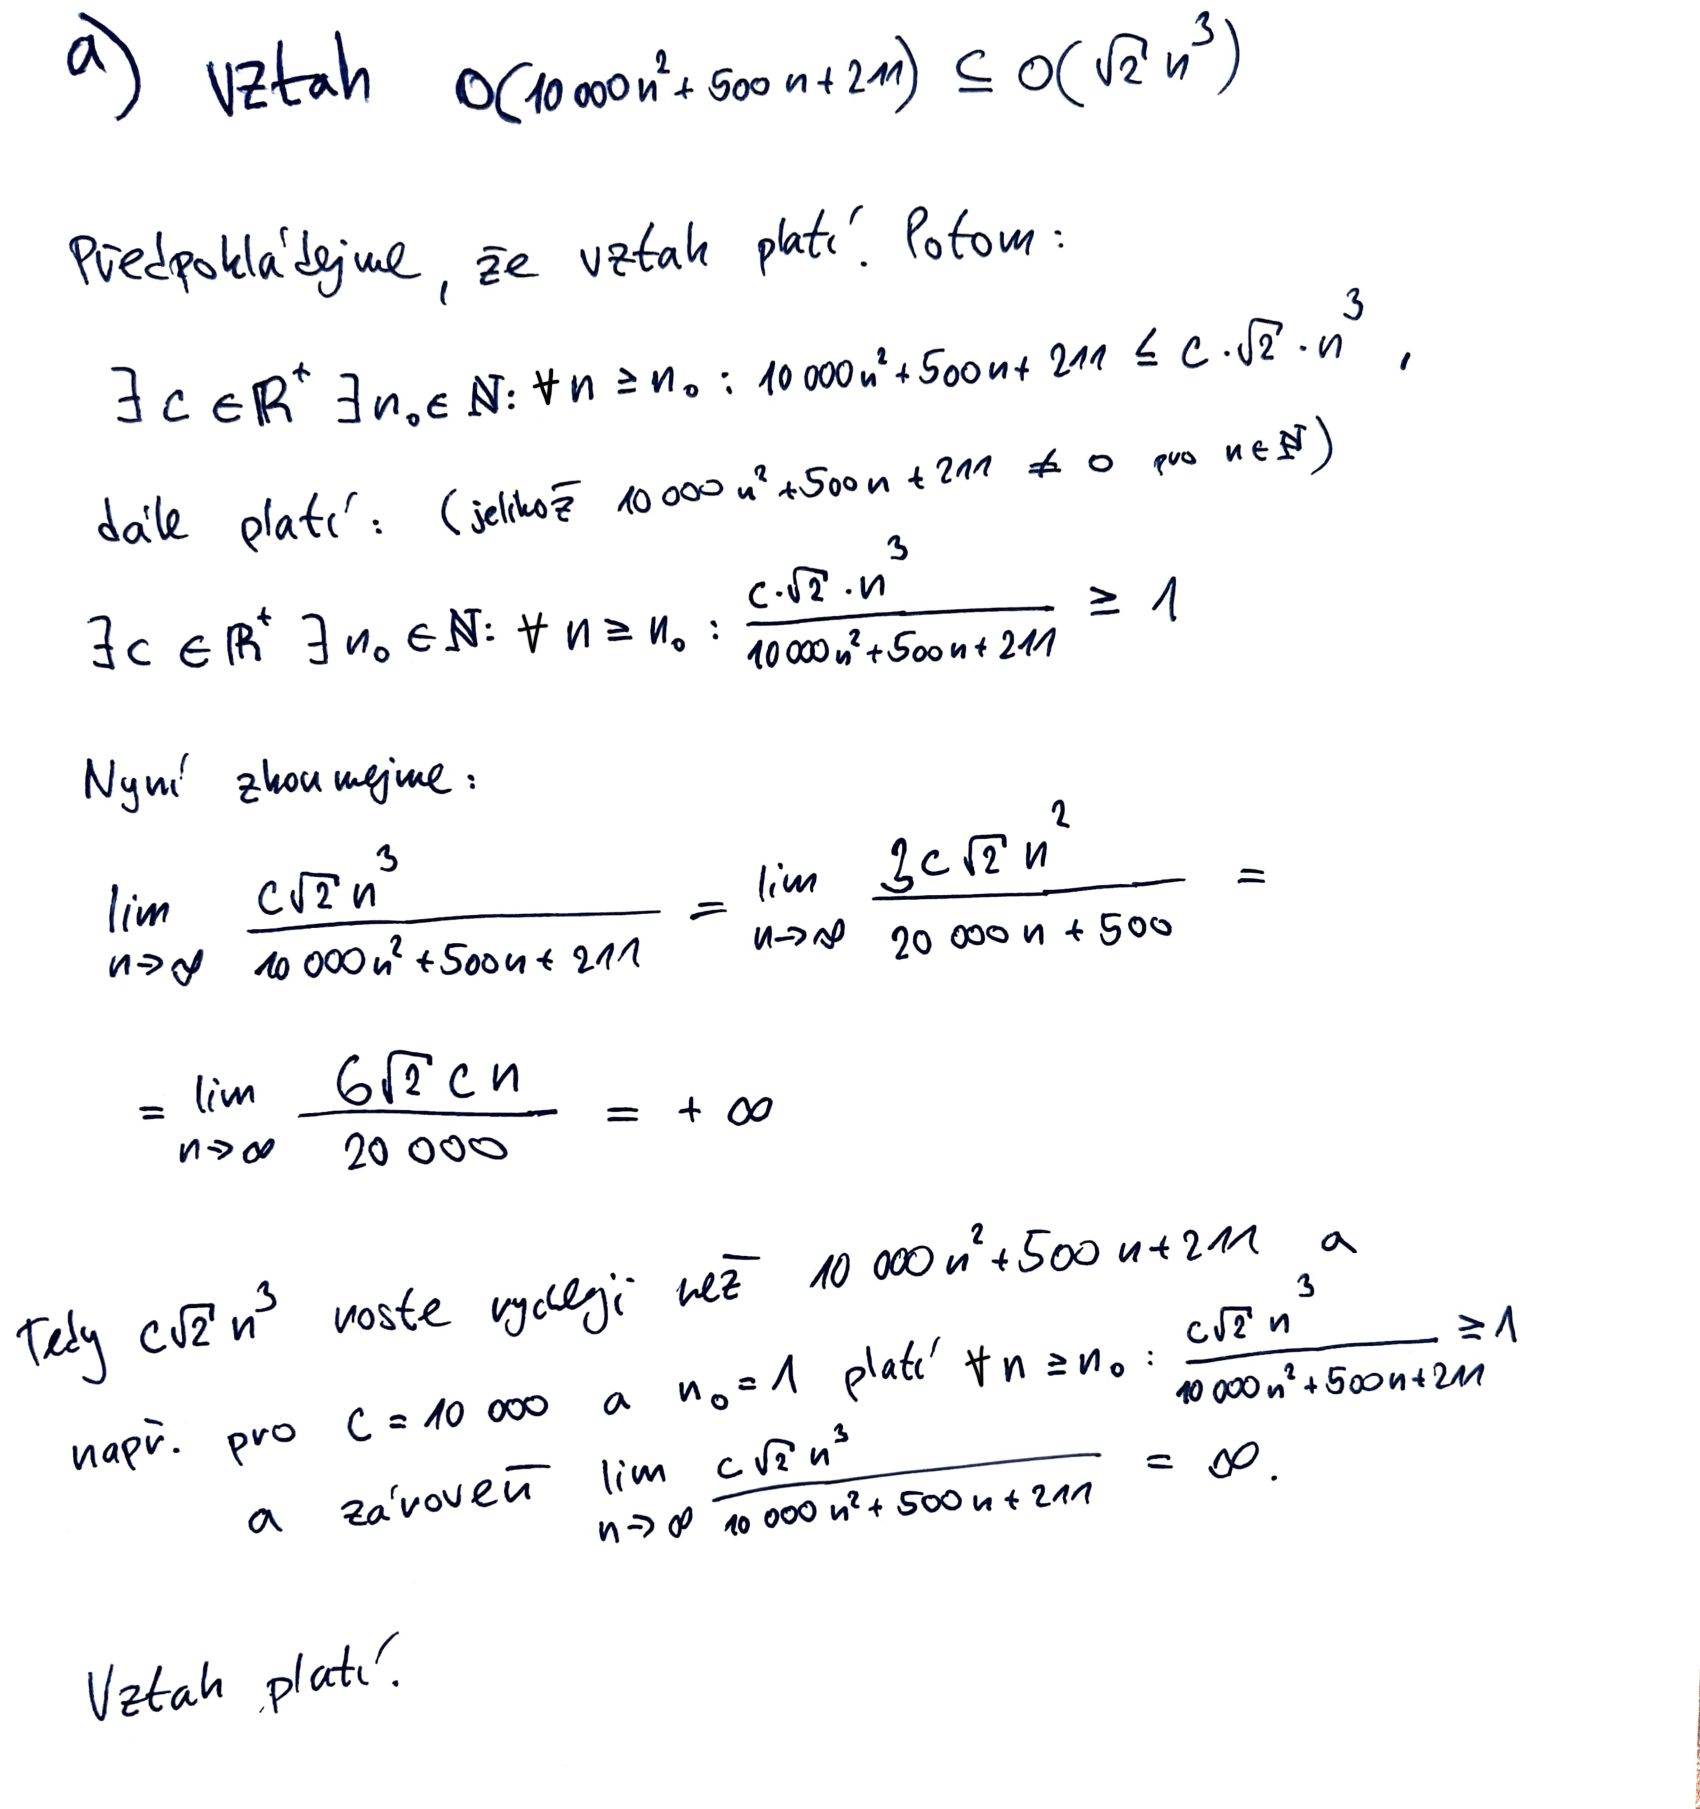 a) Vztah O(10 000 n² + 500 n + 211) ⊆ O(√2 n³)
Předpokládejme, že vztah platí. Potom:
∃ c ∈ ℝ⁺ ∃ n₀ ∈ ℕ: ∀ n ≥ n₀ : 10 000 n² + 500 n + 211 ≤ c · √2 · n³ ,
dále platí: (jelikož 10 000 n² + 500 n + 211 ≠ 0 pro n ∈ ℕ)
∃ c ∈ ℝ⁺ ∃ n₀ ∈ ℕ: ∀ n ≥ n₀ : (c · √2 · n³) / (10 000 n² + 500 n + 211) ≥ 1
Nyní zkoumejme:
lim n→∞ (c √2 n³) / (10 000 n² + 500 n + 211) = lim n→∞ (3 c √2 n²) / (20 000 n + 500) =
= lim n→∞ (6 √2 c n) / (20 000) = + ∞
Tedy c √2 n³ roste rychleji než 10 000 n² + 500 n + 211 a
např. pro c = 10 000 a n₀ = 1 platí ∀ n ≥ n₀ : (c √2 n³) / (10 000 n² + 500 n + 211) ≥ 1
a zároveň lim n→∞ (c √2 n³) / (10 000 n² + 500 n + 211) = ∞.
Vztah platí.